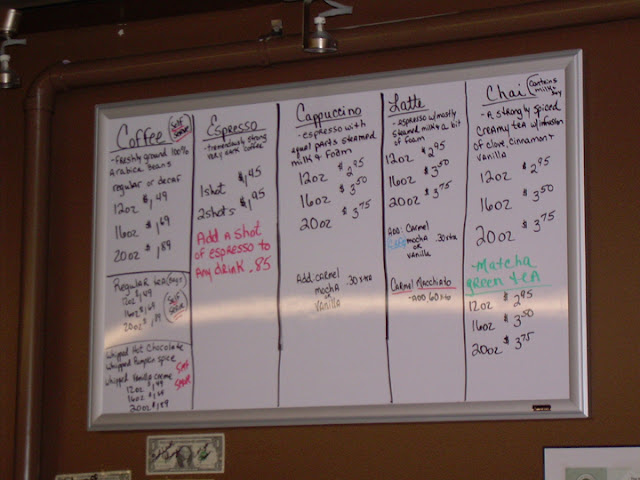 Coffee
Self
Serve
-freshly ground 100%
Arabica beans
regular or decaf
12oz $1.49
16oz $1.69
20oz $1.89
Regular tea (bags)
12oz $1.49
16oz $1.69
20oz $1.89
Self
Serve
Whipped Hot Chocolate
Whipped Pumpkin Spice
Whipped Vanilla Creme
Self
Serve
12oz $1.49
16oz $1.69
20oz $1.89
Espresso
-tremendously strong
very dark coffee
1shot $1.45
2shots $1.95
Add a shot
of espresso to
any drink .85
Cappuccino
-espresso with
equal parts steamed
milk & foam
12oz $2.95
16oz $3.50
20oz $3.75
Add: carmel
mocha .30 xtra
or
vanilla
Latte
-espresso w/mostly
steamed milk & a bit
of foam
12oz $2.95
16oz $3.50
20oz $3.75
Add: Carmel
mocha .30 xtra
or
vanilla
Carmel Macchiato
-add 60 xtra
Chai
contains
milk
-A strongly spiced
creamy tea w/infusion
of clove, cinnamon &
vanilla
12oz $2.95
16oz $3.50
20oz $3.75
-Matcha
green tea
12oz $2.95
16oz $3.50
20oz $3.75